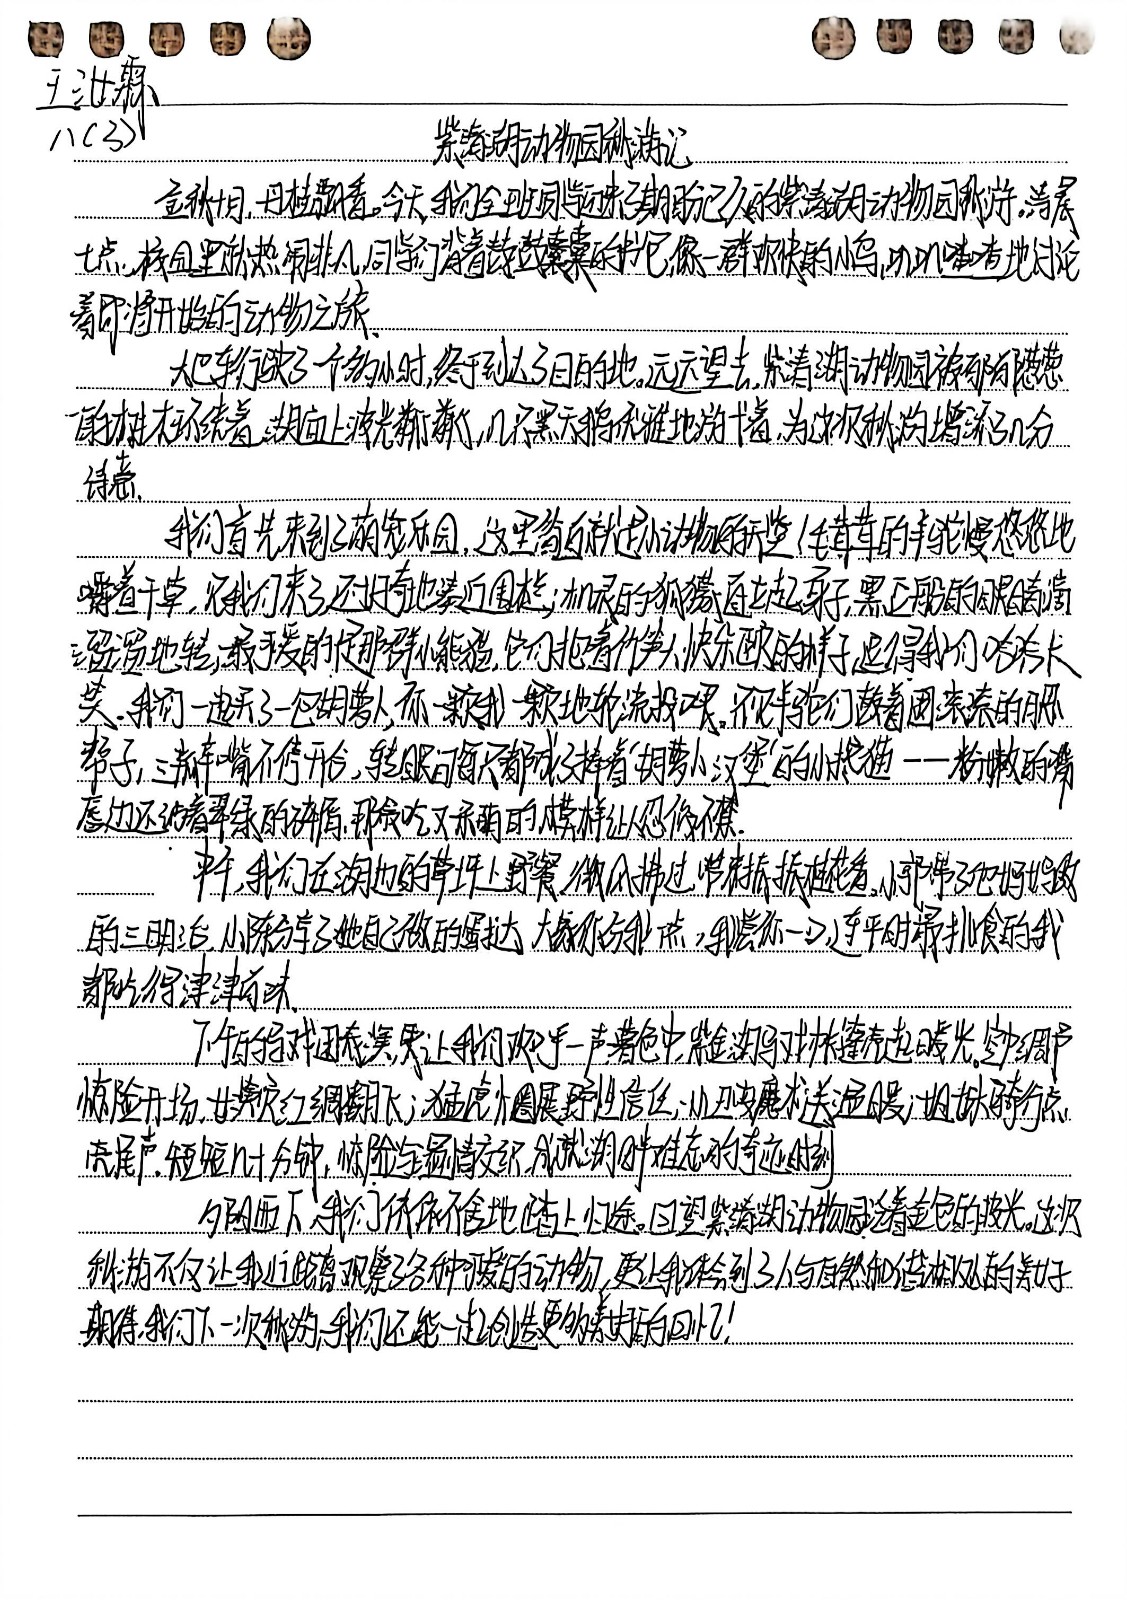 王汝霖
八(3)
紫清湖动物园秋游记
金秋十月,丹桂飘香。今天,我们全班同学迎来了期盼已久的紫清湖动物园秋游。清晨
七点,校园里就热闹非凡,同学们背着鼓鼓囊囊的书包,像一群欢快的小鸟,叽叽喳喳地讨论
着即将开始的动物之旅。
大巴车行驶了一个多小时,终于到达了目的地。远远望去,紫清湖动物园被郁郁葱葱
的树木环绕着,湖面上波光粼粼,几只黑天鹅优雅地游弋着,为这次秋游增添了几分
诗意。
我们首先来到了萌宠乐园,这里简直就是小动物的天堂!毛茸茸的羊驼慢悠悠地
嚼着干草,见我们来了还好奇地凑近围栏;机灵的狐獴直立起身子,黑豆般的眼睛滴
溜溜地转;最可爱的是那群小熊猫,它们抱着竹笋大快朵颐的样子,逗得我们哈哈大
笑。我们一边买了一包胡萝卜,你一颗我一颗地轮流投喂。只见羊驼们鼓着圆滚滚的腮
帮子,三瓣嘴不停开合,转眼间每只都成了捧着"胡萝卜汉堡"的小馋猫——粉嫩的嘴
唇边还沾着翠绿的碎屑,那贪吃又呆萌的模样让人忍俊不禁。
中午,我们在湖边的草坪上野餐,微风拂过,带来振振桂花香。小郭带了他妈妈做
的三明治,小陈分享了她自己做的蛋挞,大家你给我一点,我尝你一口,连平时最挑食的我
都吃得津津有味。
下午的马戏团表演更让我们欢呼一声暮色中,紫金湖马戏大篷亮起暖光。空中绸吊
惊险开场,女演员红绸翻飞;猛虎火圈展野性信任,小丑变魔术送温暖;姐妹骑行点
亮尾声。短短几十分钟,惊险与温情交织,成就湖畔难忘的奇迹时刻
夕阳西下,我们依依不舍地踏上归途。回望紫清湖动物园泛着金色的波光。这次
秋游不仅让我近距离观察了各种可爱的动物,更让我体会到了人与自然和谐相处的美好
期待我们下一次秋游,我们还能一起创造更多美好的回忆!